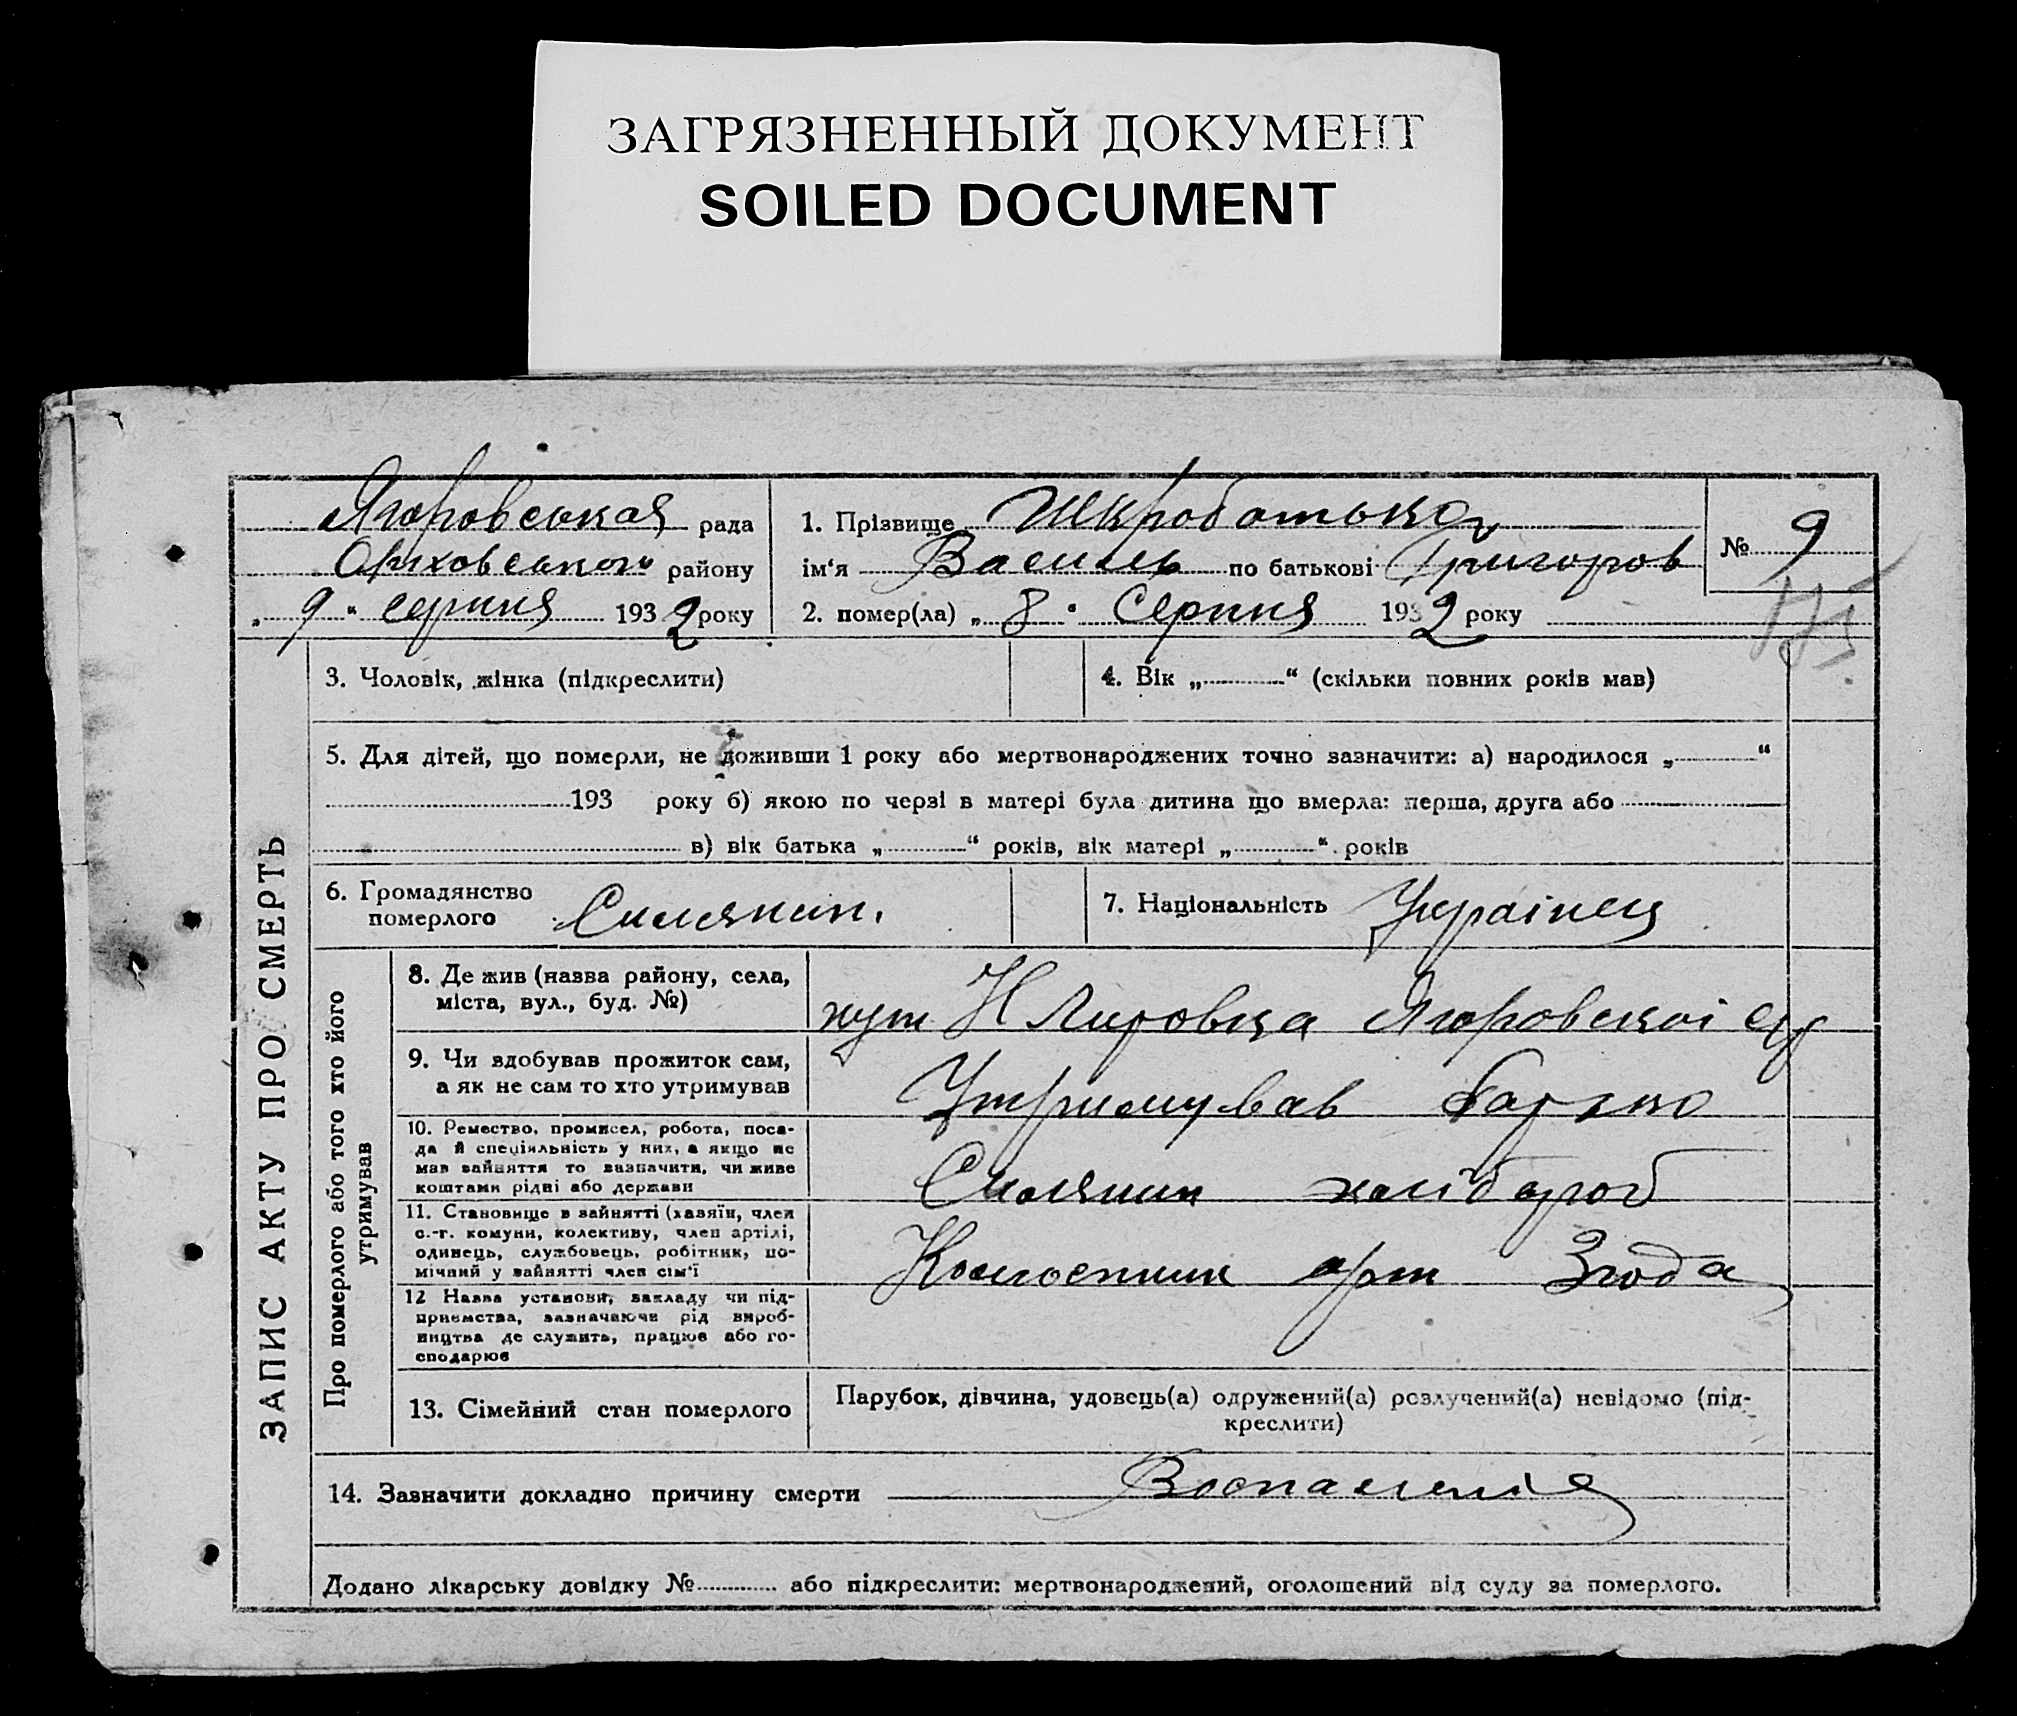 ЗАГРЯЗНЕННЫЙ ДОКУМЕНТ
SOILED DOCUMENT
рада
району
„ 9 “ серпня 1932 року
1. Прізвище Шкроботько
ім‘я Василь по батькові Григоров
2. помер(ла) „ 8 “ Серпня 1932 року
№ 9
175
ЗАПИС АКТУ ПРО СМЕРТЬ
3. Чоловік, жінка (підкреслити)
4. Вік „ “ (скільки повних років мав)
5. Для дітей, що померли, не доживши 1 року або мертвонароджених точно зазначити: а) народилося „ “
193 року б) якою по черзі в матері була дитина що вмерла: перша, друга або
в) вік батька „ “ років, вік матері „ “ років
6. Громадянство
померлого Силянин.
7. Національність Українец
Про померлого або того хто його
утримував
8. Де жив (назва району, села,
міста, вул., буд. №)
хут
9. Чи вдобував прожиток сам,
а як не сам то хто утримував
Утримував батько
10. Ремество, промисел, робота, поса-
да й спеціяльність у них, а якщо не
мав вайняття то вазначити, чи живе
коштами рідні або держави
Силянин хлібороб
11. Становище в вайнятті (хазяїн, член
с.-г. комуни, колективу, член артілі,
одинець, службовець, робітник, по-
мічний у вайнятті член сім‘ї
Колгоспник арт Згода
12 Назва установи, вакладу чи під-
приємства, вазначаючи рід вироб-
ництва де служить, працює або го-
сподарює
13. Сімейний стан померлого
Парубок, дівчина, удовець(а) одружений(а) розлучений(а) невідомо (під-
креслити)
14. Зазначити докладно причину смерти Воспаленія
Додано лікарську довідку № або підкреслити: мертвонароджений, оголошений від суду за померлого.